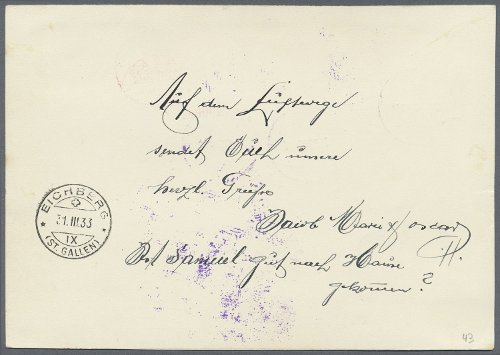 Auf dem Luftwege
sendet Euch unsere
herzl. Grüße
Jacob Marie & oscar
H.
Ist Samuel gut nach Hause
gekommen?
EICHBERG
31.III.33
IX
(ST. GALLEN)
43